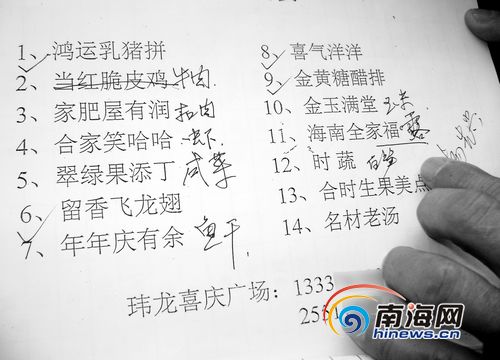 1、鸿运乳猪拼
2、当红脆皮鸡 牛肉
3、家肥屋有润 扣肉
4、合家笑哈哈 虾
5、翠绿果添丁 咸菜
6、留香飞龙翅
7、年年庆有余 鱼干
8、喜气洋洋
9、金黄糖醋排
10、金玉满堂
11、海南全家福
12、时蔬
13、合时生果美点
14、名材老汤
玮龙喜庆广场：1333
255
南海网
hinews.cn